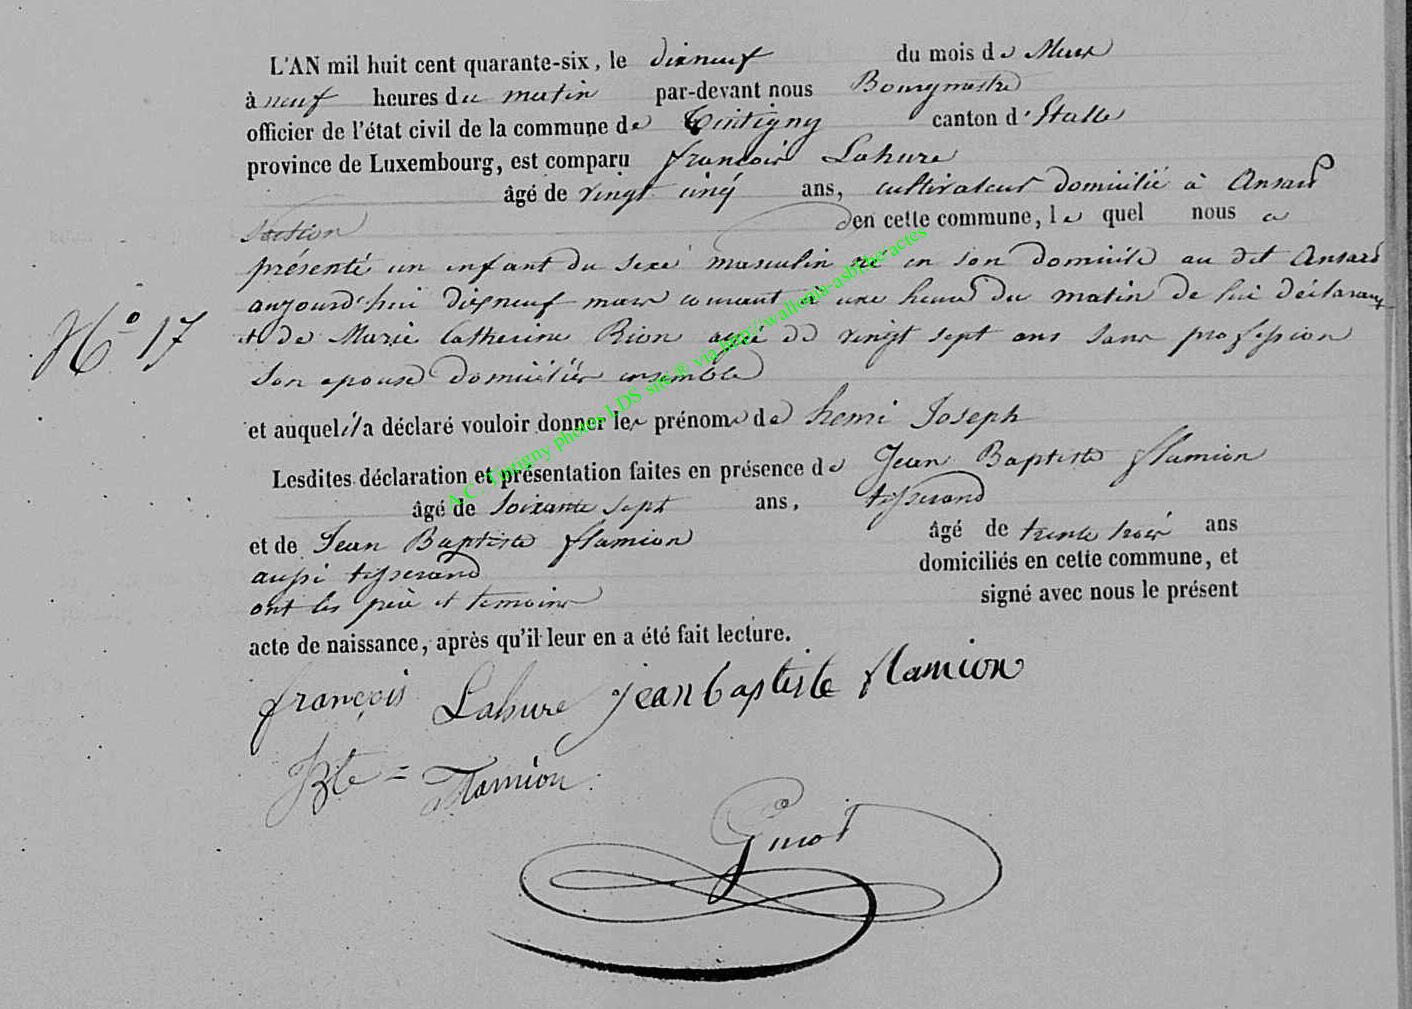 L'AN mil huit cent quarante-six, le dixneuf du mois de Mars
à neuf heures du matin par-devant nous Bourgmestre
officier de l'état civil de la commune de Tintigny canton d'Etalle
province de Luxembourg, est comparu françois Lahure
âgé de vingt cinq ans, cultivateur domicilié à Ansart
section en cette commune, le quel nous a
présenté un enfant du sexe masculin né en son domicile au dit Ansard
aujourd'hui dixneuf mars courant à une heure du matin de lui déclarant
et de Marie Catherine Rion agée de vingt sept ans sans profession
Son epouse domiciliés ensemble
N° 17
et auquel il a déclaré vouloir donner les prénoms de henri Joseph
Lesdites déclaration et présentation faites en présence de Jean Baptiste flamion
âgé de soixante sept ans, tisserand
et de Jean Baptiste flamion âgé de trente trois ans
aussi tisserand domiciliés en cette commune, et
ont les père et temoins signé avec nous le présent
acte de naissance, après qu'il leur en a été fait lecture.
françois Lahure jean baptiste flamion
JBte = flamion
A.C. Tintigny photos LDS site ® via http://wallonia-asbl.be/actes